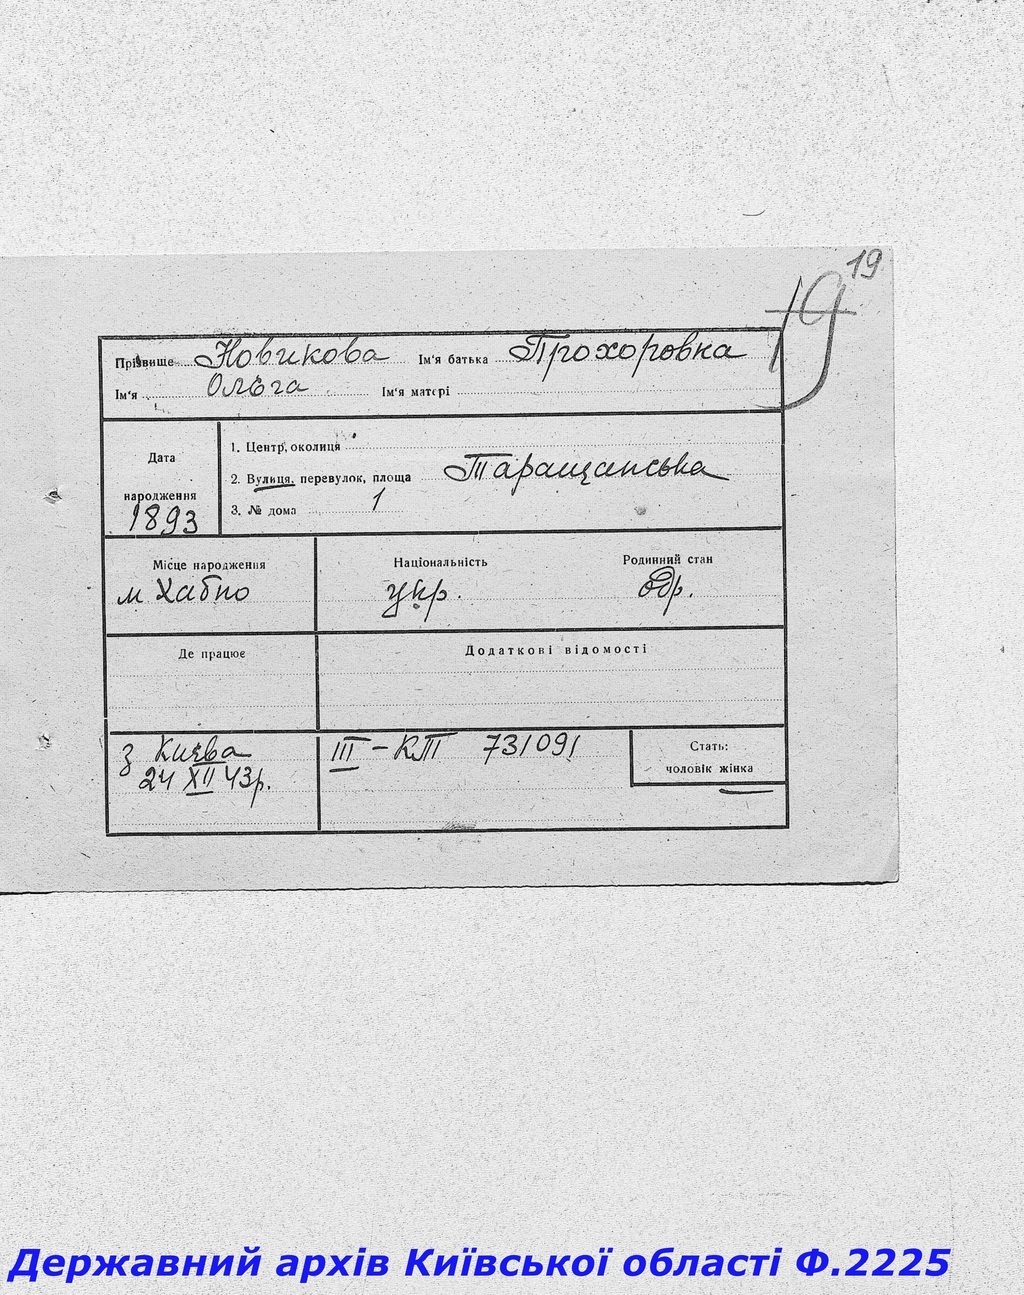 19
19
Прізвище Новикова Ім'я батька Прохоровка
Ім'я Ольга Ім'я матері
Дата народження 1893
1. Центр, околиця
2. Вулиця, перевулок, площа Таращанська
3. № дома 1
Місце народження
м Хабно
Національність
укр.
Родинний стан
одр.
Де працює
Додаткові відомості
з Києва
24 XII 43р.
III – КП 731091
Стать:
чоловік жінка
Державний архів Київської області Ф.2225